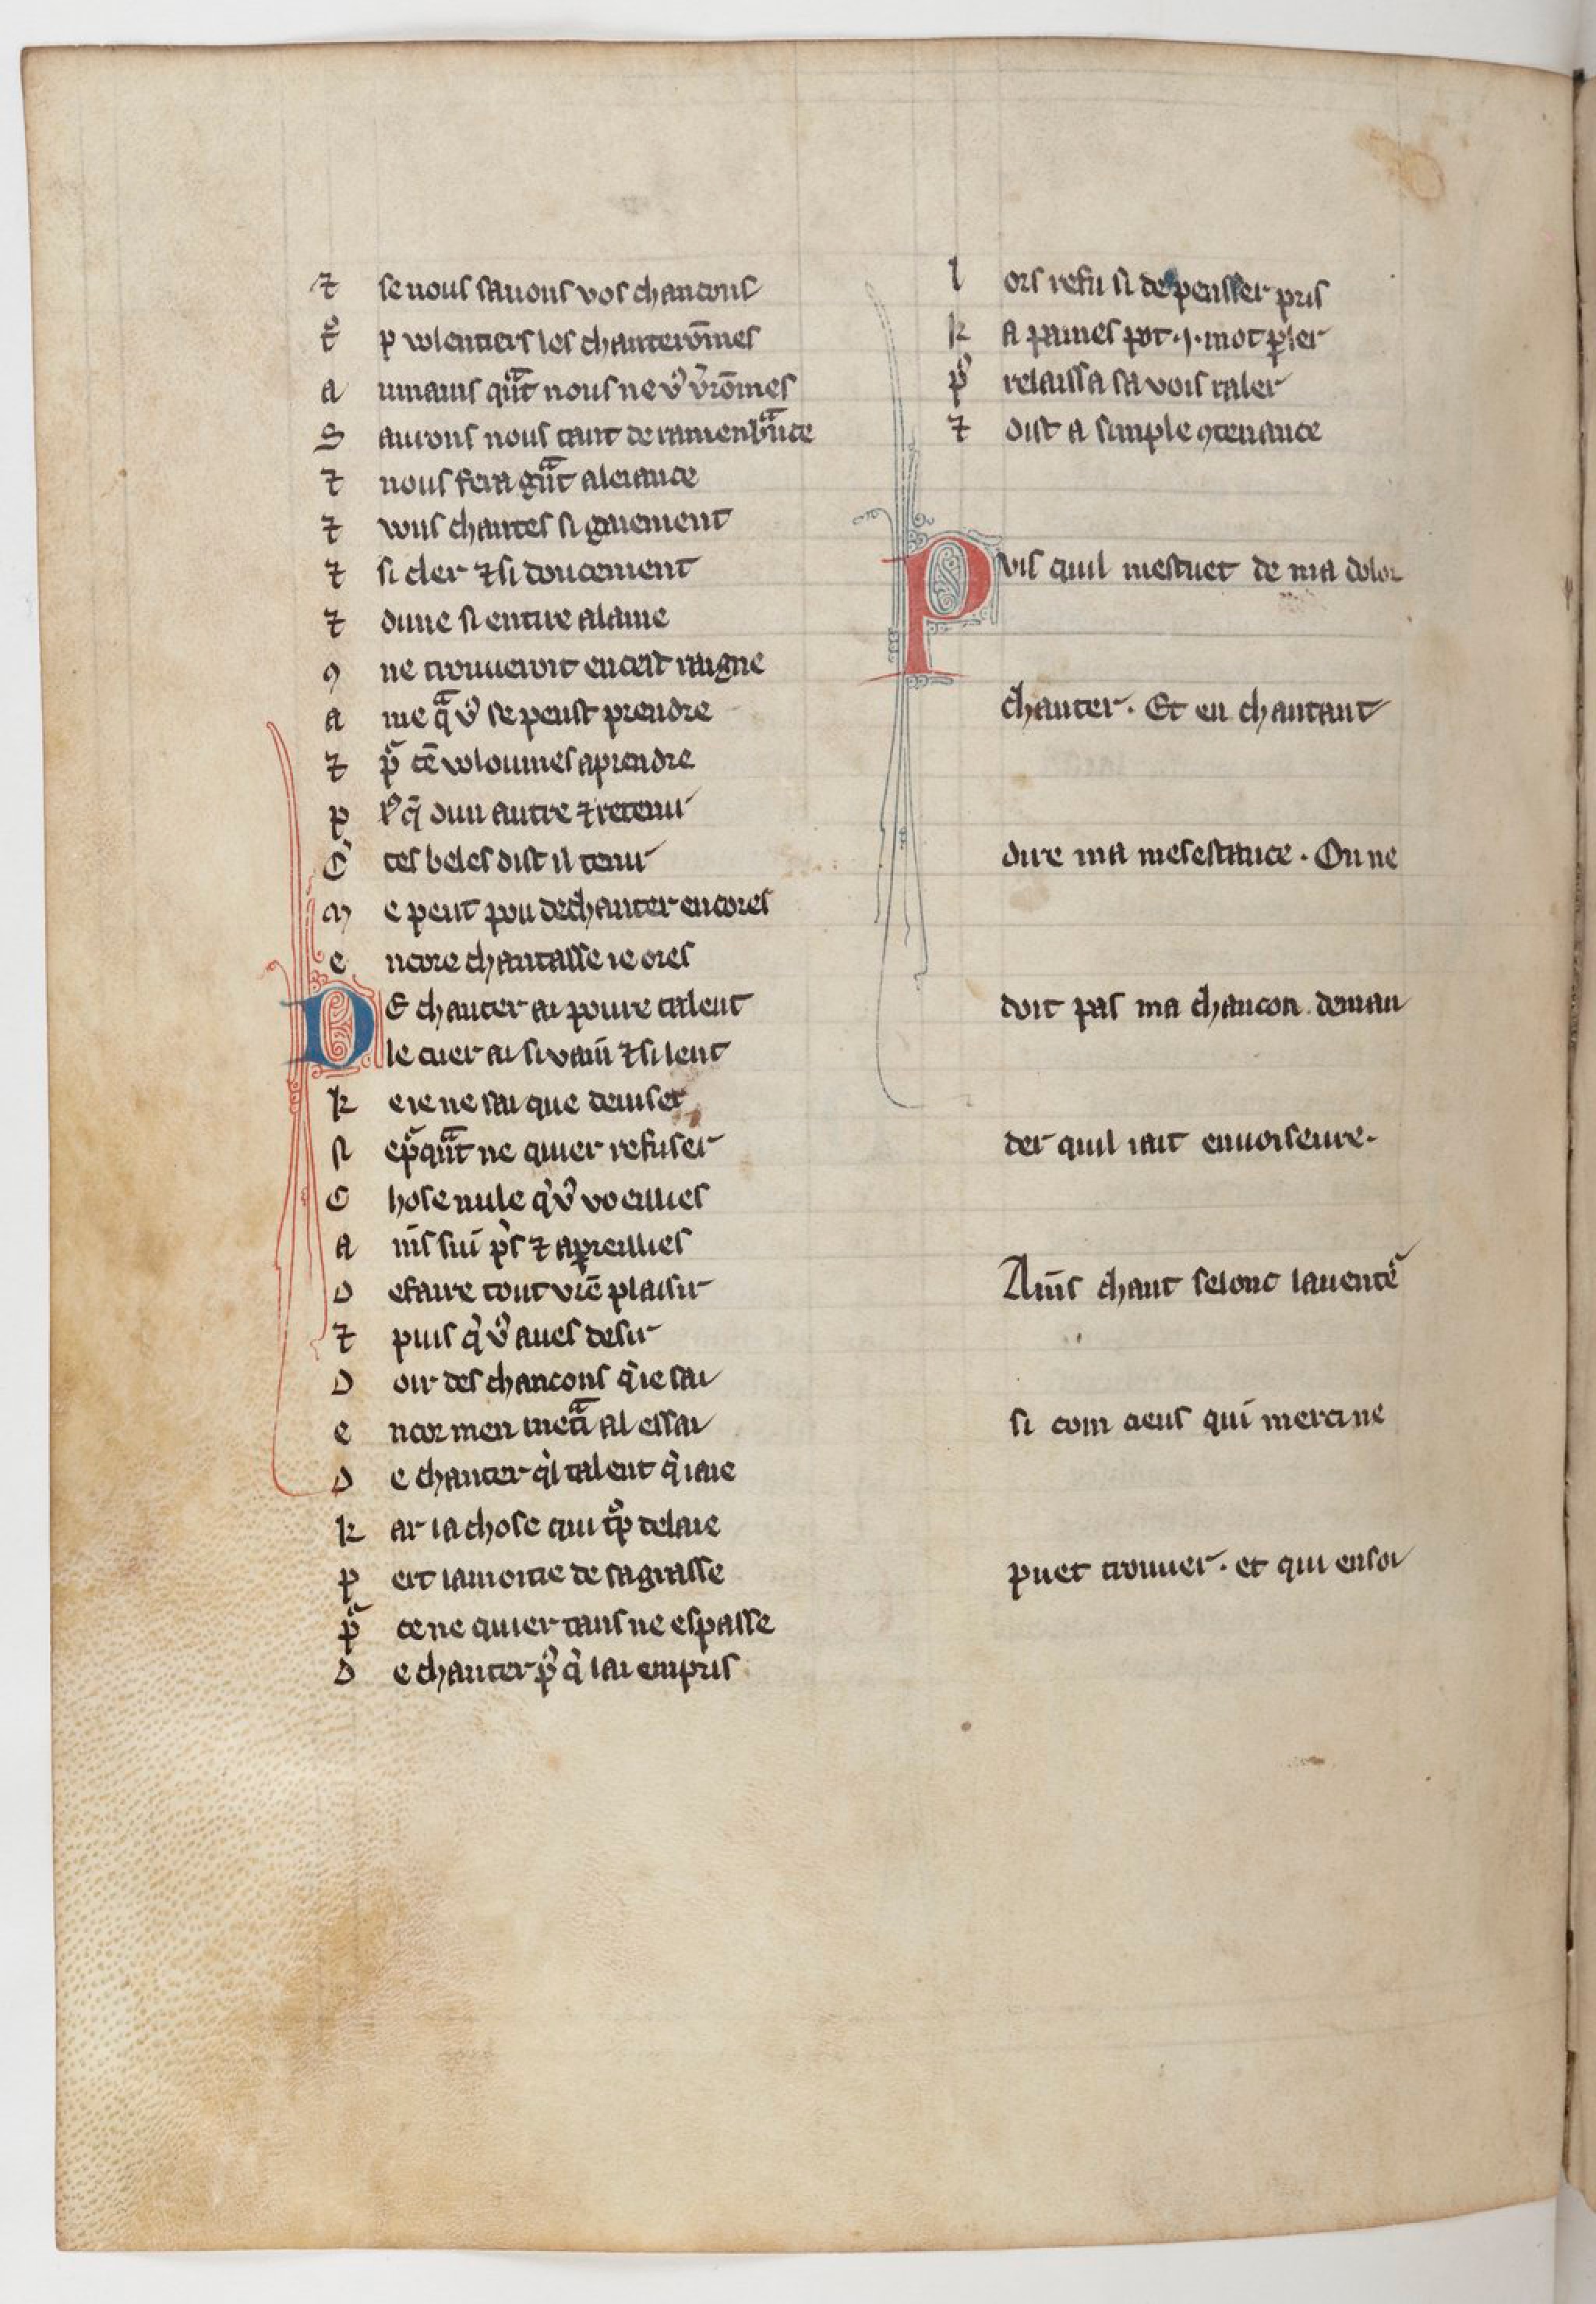 ⁊ se nous sauons vos chancons
tͦ p volentiers les chanterōmes
a umains qᵃ̄t nous ne vͦ vͤrōmes
S aurons nous tant de ramenbᵃnce
⁊ nous fera gᵃ̄nt aleiance
⁊ vous chantes si gaiement
⁊ si cler ⁊ si doucement
⁊ dune si entire alaine
ꝯ ne trouueroit en cest raigne
a me qᵃ vͦ se peust prendre
⁊ pͬ cē volonmes aprendre
p lͦ q̄ dun autre ⁊ retenir
C tes beles dist il tenir
m e peut pou de chanter encores
e ncore chantasse ie ores
DE chanter ai poure talent
le cuer ai si vain ⁊ si lent
k e ie ne sai que deuiser
s e pͬ qᵃ̄nt ne quier refuser
C hose nule qͥ vͦ voeillies
a ins sui pͥs ⁊ apreillies
D e faire tout vrē plaisir
⁊ puis qͥ vͦ aues desir
D oir des chancons qͥ ie sai
e ncor men metᵃi al essai
D e chanter qͥl talent qͥ iaie
k ar la chose qui tͦp delaie
p ert la moitie de sa grasse
pͬ ce ne quier tans ne espasse
D e chanter pͥ qͥ lai empris
l ors refu si de pensser pris
k a paines pot .j. mot ꝑler
pͦ relaissa sa vois raler
⁊ dist a simple ꝯtenance
Pvis quil mestuet de ma dolor
chanter. Et en chantant
dire ma mesestance. On ne
doit pas ma chancon deman
der quil iait enuoiseure.
Ains chant selonc lauentͬe
si com cieus qui merci ne
puet trouuer. et qui en soi